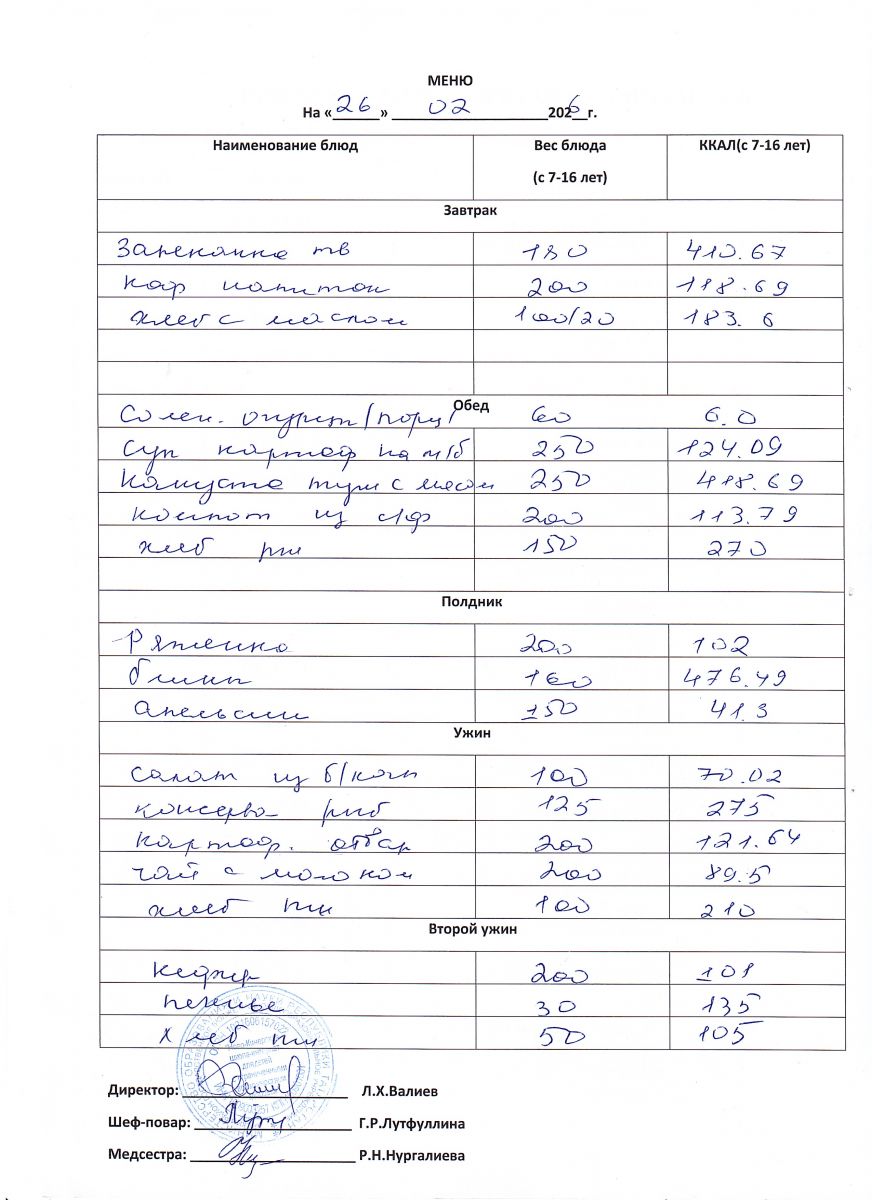 МЕНЮ
На « 26 » 02 2026 г.
Наименование блюд Вес блюда (с 7-16 лет) ККАЛ(с 7-16 лет)
Завтрак
Запеканка тв 180 410.67
Коф напиток 200 118.69
хлеб с маслом 100/20 183.6
Обед
Солен. огурец/порц/ 60 6.0
Суп картоф на м/б 250 124.09
Капуста туш с мясом 250 418.69
компот из с/ф 200 113.79
хлеб рш 150 270
Полдник
Ряженка 200 102
блины 160 476.49
апельсин 150 41.3
Ужин
салат из б/коч 100 70.02
консерва рыб 125 275
картоф. отвар 200 121.64
чай с молоком 200 89.5
хлеб пш 100 210
Второй ужин
Кефир 200 101
печенье 30 135
Хлеб пш 50 105
Директор: Л.Х.Валиев
Шеф-повар: Г.Р.Лутфуллина
Медсестра: Р.Н.Нургалиева